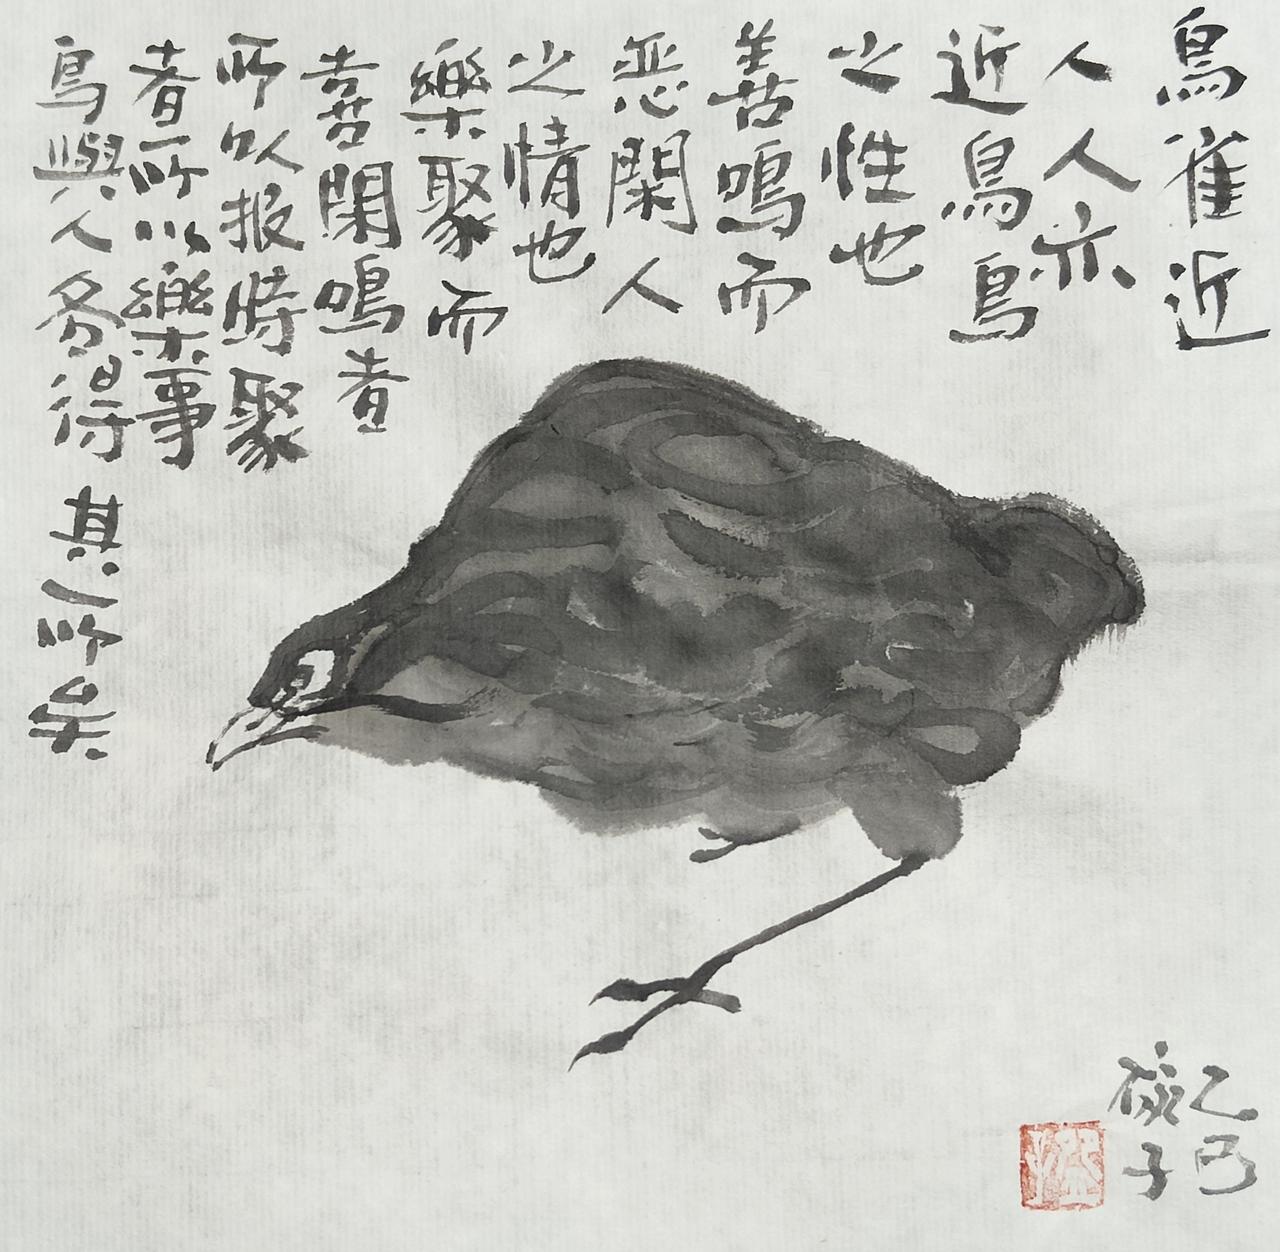 鳥雀近
人人亦
近鳥鳥
之性也
善鳴而
恶閑人
之情也
樂聚而
喜閑鳴者
所以报時聚
者所以樂事
鳥與人各得其所矣
乙巳